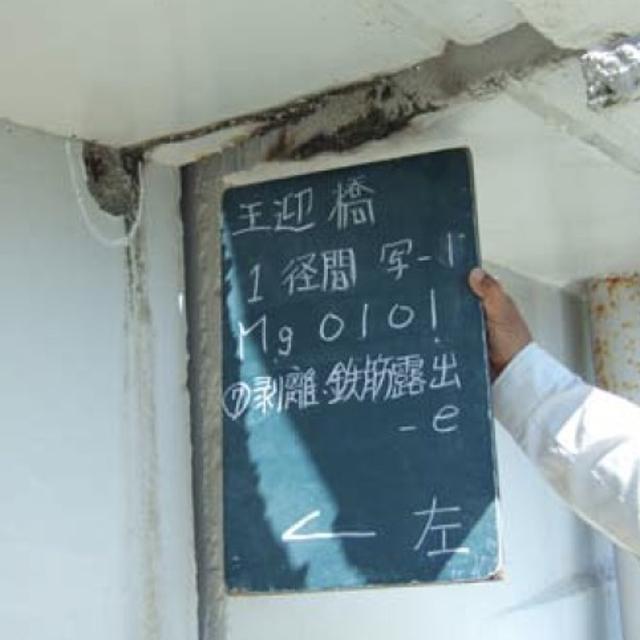 王迎橋
1 径間 写-1
Mg 0101
⑦剥離・鉄筋露出
-e
← 左